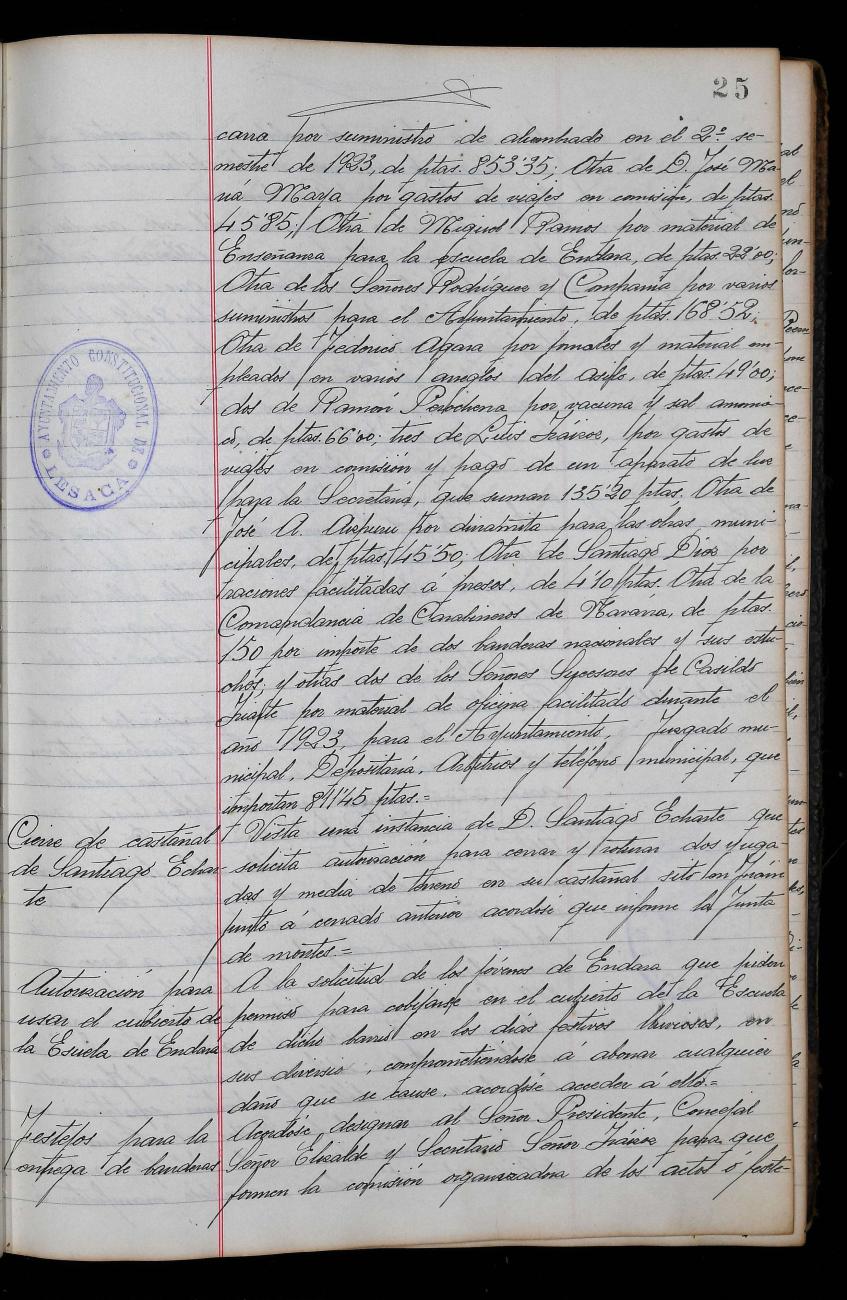 25
carra por suministro de alumbrado en el 2º se-
mestre de 1923, de ptas. 853'35; Otra de D. José Ma-
ria Maya por gastos de viajes en comisión, de ptas.
45'85; Otra de Miguel Ramos por material de
Enseñanza para la escuela de Endara, de ptas. 22'00;
Otra de los Señores Rodríguez y Compañia por varios
suministros para el Ayuntamiento, de ptas. 168'52;
Otra de Federico Agara por jornales y material em-
pleados en varios arreglos del asilo, de ptas. 49'00;
dos de Ramón Perochena por vacuna y sal amonia-
có, de ptas. 66'00; tres de Luis Iráizoz, por gastos de
viajes en comisión y pago de un aparato de luz
para la Secretaria, que suman 135'20 ptas. Otra de
José A. por dinamita para las obras muni-
cipales, de ptas. 45'50; Otra de Santiago Dioz por
raciones facilitadas á presos, de 4'10 ptas. Otra de la
Comandancia de Carabineros de Navarra, de ptas.
150 por importe de dos banderas nacionales y sus estu-
ches; y otras dos de los Señores Sucesores de Casildo
Iriarte por material de oficina facilitado durante el
año 1923, para el Ayuntamiento, Juzgado mu-
nicipal, Depositaria, Arbitrios y teléfono municipal, que
importan 811'45 ptas.=
Cierre de castañal
de Santiago Echar-
te
Vista una instancia de D. Santiago Echarte que
solicita autorización para cerrar y roturar dos yuga-
das y media de terreno en su castañal sito en
junto á cerrado anterior acordóse que informe la Junta
de montes.=
Autorización para
usar el cubierto de
la Escuela de Endara
A la solicitud de los jóvenes de Endara que piden
permiso para cobijarse en el cubierto de la Escuela
de dicho barrio en los días festivos lluviosos, en
sus diversio , comprometiéndose á abonar cualquier
daño que se cause, acordóse acceder á ello.=
Festejos para la
entrega de banderas
Acordóse designar al Señor Presidente, Concejal
Señor Elizalde y Secretario Señor Iráizoz para que
formen la comisión organizadora de los actos ó feste-
AYUNTAMIENTO CONSTITUCIONAL DE
LESACA